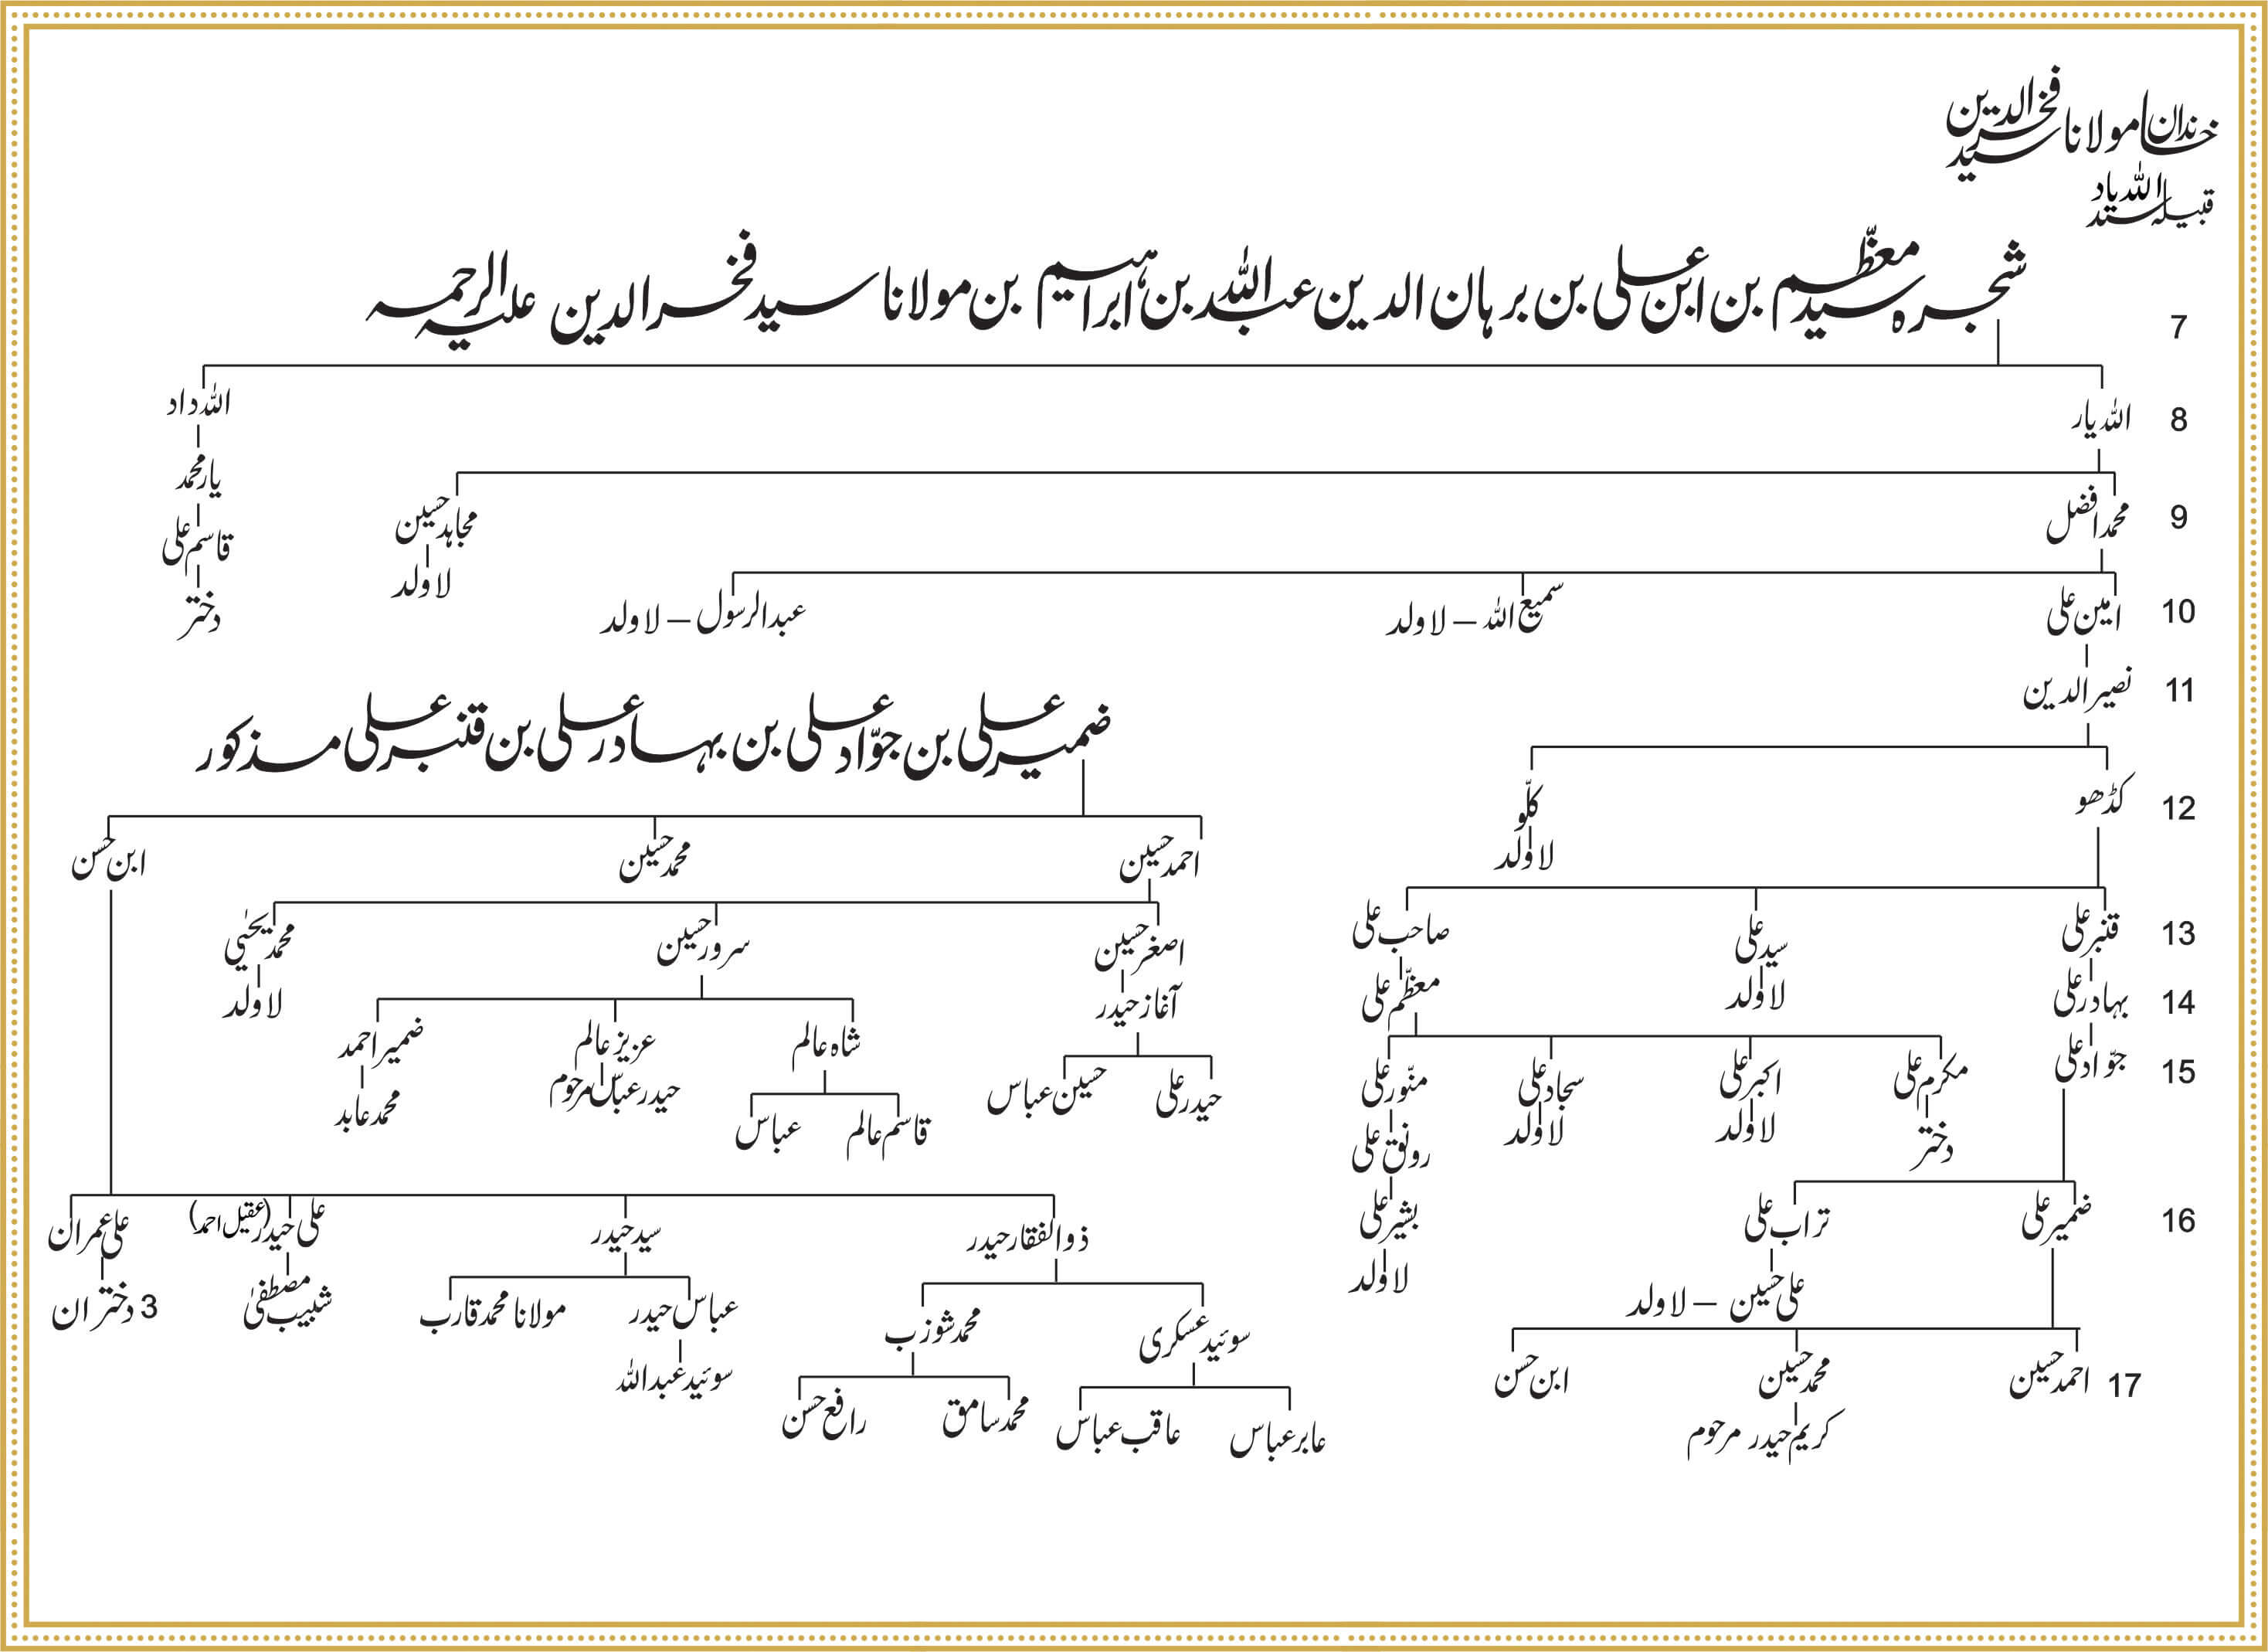 خاندان مولانا سید فخرالدین
قبیلہ سید اللہ یاد
شجرہ سید معظّم بن ابن علی بن برہان الدین عبداللہ بن ابراہیم بن مولانا سید فخرالدین علیہ الرحمہ
7
اللہ یار اللہ داد
8
یار محمد
محمد افضل مجاہد حسین قاسم علی
9
لاولد دختر
امین علی سمیع اللہ – لاولد عبدالرسول – لاولد
10
نصیرالدین
11
ضمیر علی بن جوّاد علی بن بہادر علی بن قنبر علی مذکور
کڈھو کلّو
12
لاولد
احمد حسین محمد حسین ابن حسن
قنبر علی سید علی صاحب علی
13
لاولد معظّم علی
اصغر حسین سرور حسین محمد یحییٰ
آغاز حیدر لاولد
بہادر علی
14
شاہ عالم عزیز عالم ضمیر احمد
حیدر عباس مرحوم محمد عابد
جوّاد علی
15
مکرم علی اکبر علی سجاد علی منّور علی
دختر لاولد لاولد رونق علی
حیدر علی حسین عباس
قاسم عالم عباس
ضمیر علی تراب علی بشیر علی
16
علی حسین – لاولد لاولد
ذوالفقار حیدر سید حیدر علی حیدر (عقیل احمد) علی عمران
سوئید عسکری محمد شوزب عباس حیدر مولانا محمد قارب شبیب مصطفیٰ 3 دختران
احمد حسین محمد حسین ابن حسن
17
کریم حیدر مرحوم
سوئید عبداللہ
عابر عباس عاقب عباس محمد سامق رافع حسن